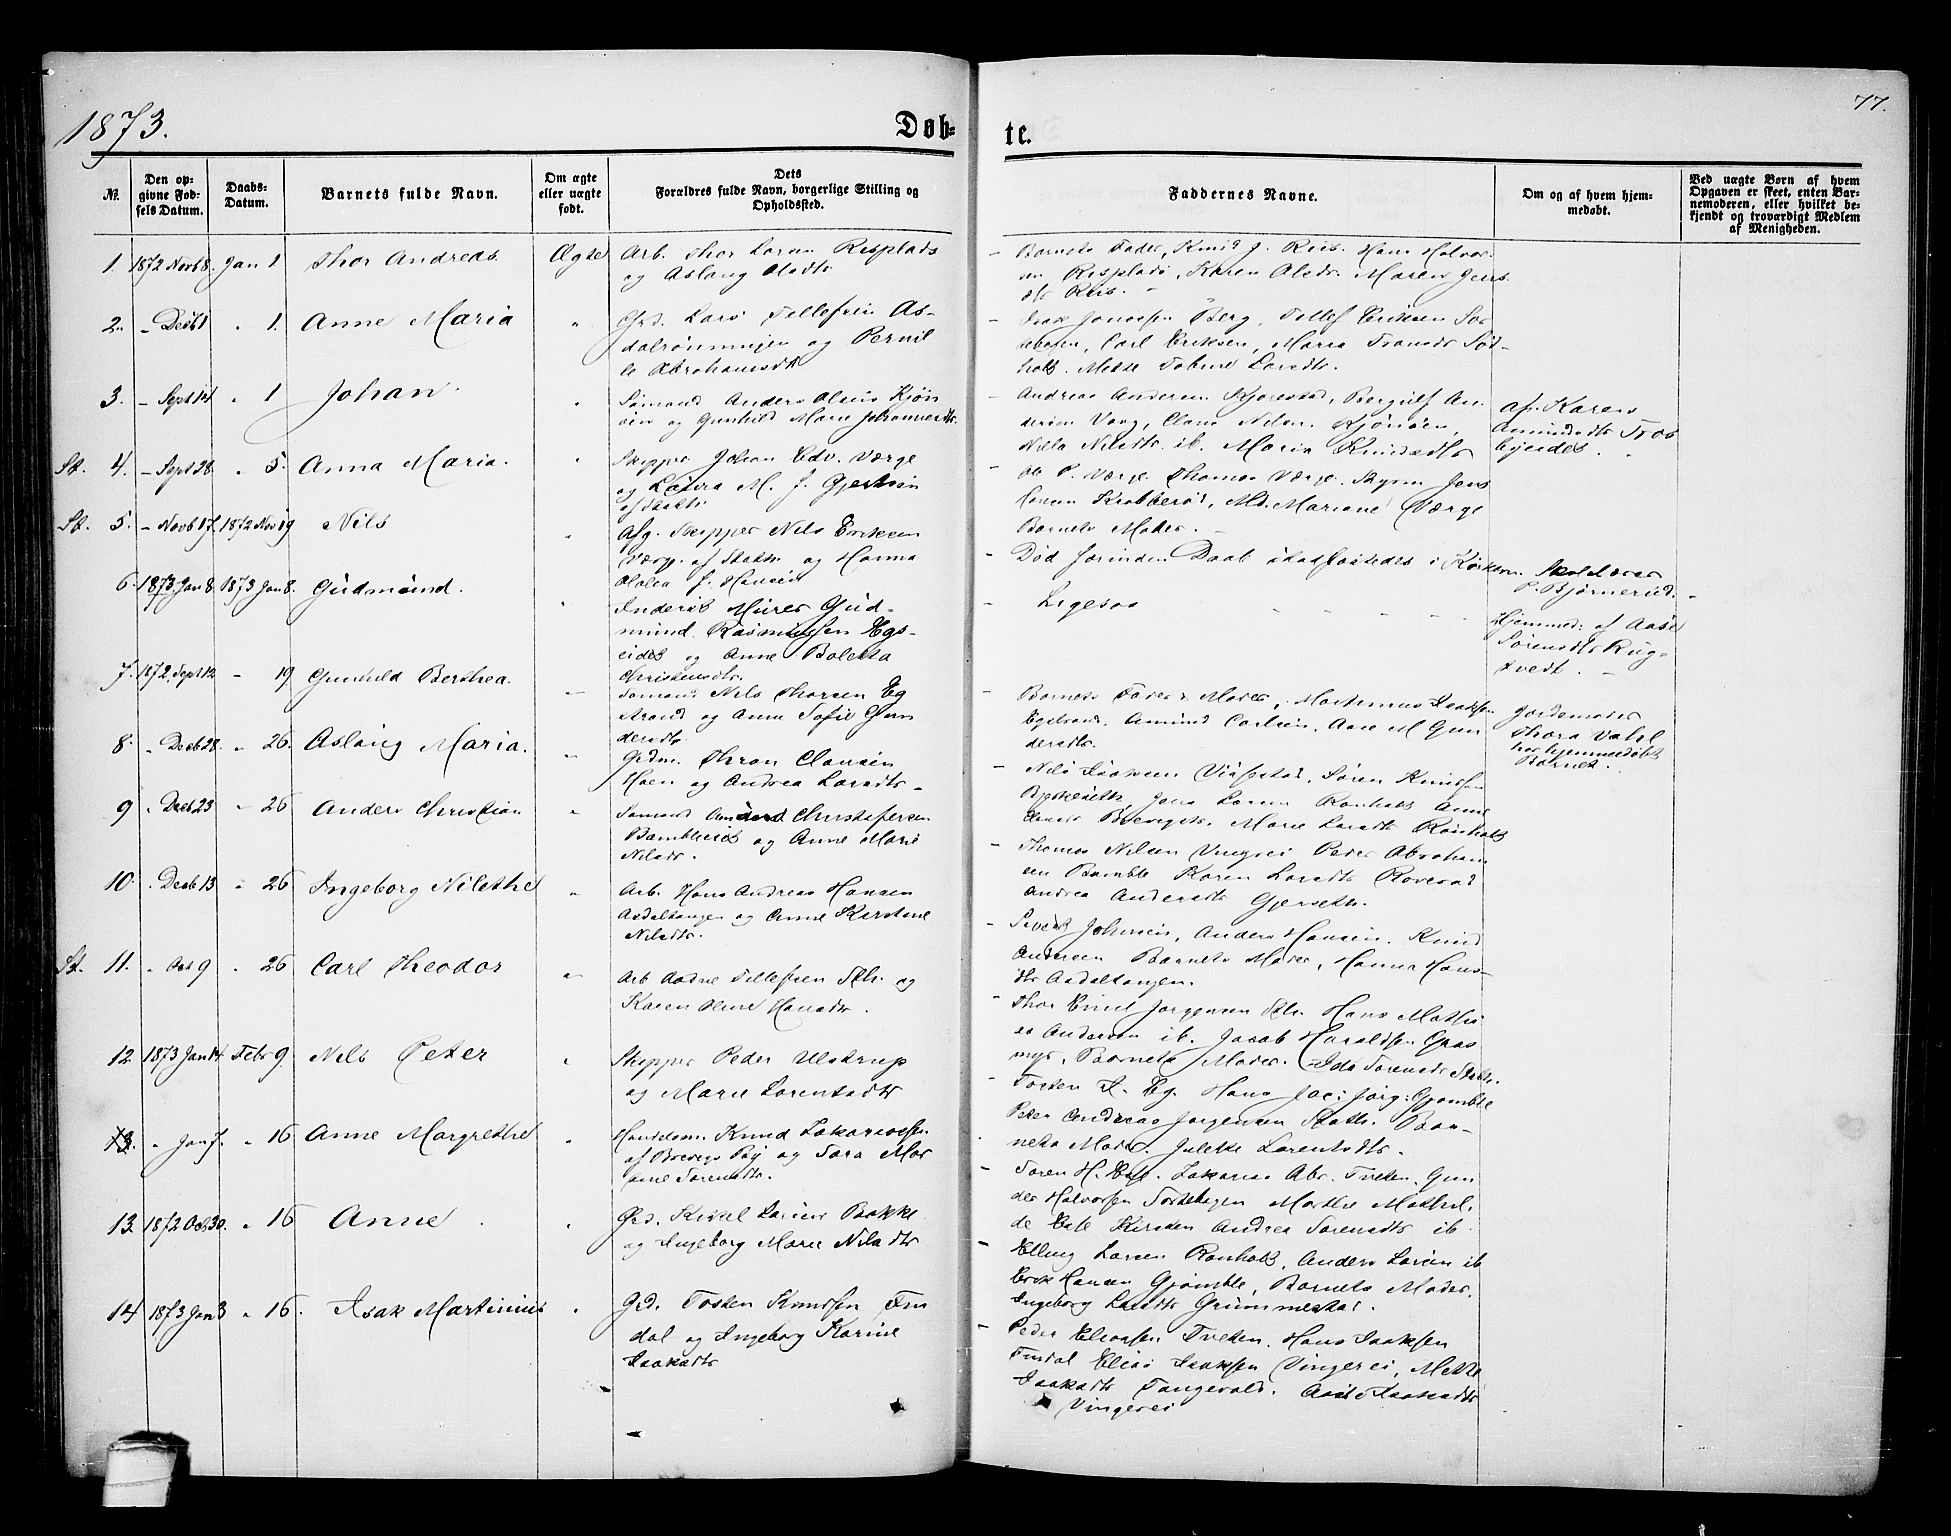 1873.
Døb-
te.
77.
№.
Den op-
givne Fød-
sels Datum.
Daabs-
Datum.
Barnets fulde Navn.
Om ægte
eller uægte
født.
Dets
Forældres fulde Navn, borgerlige Stilling og
Opholdssted.
Faddernes Navne.
Om og af hvem hjem-
medøbt.
Ved uægte Børn af hvem
Opgaven er skeet, enten Bar-
nemoderen, eller hvilket be-
kjendt og troværdigt Medlem
af Menigheden.
1. 1872 Novb 8. Jan 1 Thor Andreas Ægte
Arb. Thor Larsen Risplads
og Aslaug Olsdtr
Barnets Fader, Knud J. Riis. Hans Halvor-
sen Risplads, Karen Olsdr. Maren Jens
dtr Riis.
2. " Decb 1 " 1. Anne Maria "
Grd. Lars Tollefsen As-
dalrønningen og Pernil
le Abrahamsdtr
Isak Jonassen Berg, Tollef Eriksen
Carl Eriksen, Maria Fransdr
Mette Tobine Larsdtr.
3. - Sept 14 " 1 Johan "
Sømand Anders Olsen Kjøn
øen og Gunhild Marie Johannesdtr
Andreas Andersen Kjørestad, Bergulf An
dersen Claus Nilsen Kjønøen,
Nilla Nilsdtr. ib. Maria Knudsdtr
af Karen
Amundsdtr
St. 4. - Sept 28 " 5. Anna Maria. "
Skipper Johan Edv. Værge
og Laura M. f. Gjertsen
af Stathe
Ole P. Værge Thomas Værge. Jens
Larsen Krabberød, Md. Mariane Værge
Barnets Moder.
St. 5. - Novb 17. 1872 Nov 19 Nils "
Afg. Skipper Nils Eriksen
Værge af Stathe og Hanna
Olea f. Hansen
Død forinden Daab stadfæstedes i Kirken.
Skolelærer
P. Bjørnerud.
6. 1873 Jan 8. 1873 Jan 8. Gudmund. "
Inderst Murer Gud-
mund Rasmussen Egs-
eidet og Anne Boletta
Christensdtr.
Ligesaa
Hjemmed: af Aase
Sørensdtr Rug-
tvedt.
7. 1872 Sept 12 - 19 Gunhild Berthea. -
Sømand Nils Thorsen Eg
strand og Anne Sofie Gun
dersdtr
Barnets Fader & Moder, Mortinius Isaksen
Egstrand. Amund Carlsen, Aase M Gun
dersdtr.
Jordemoder
Thora Vahl
har hjemmedøbt
Barnet.
8. " Decb 28. " 26. Aslaug Maria.
Grdm. Thron Clausen
Hoen og Andrea Larsdtr.
Nils Isaksen Søren Knudsen
Jens Larsen Rønholt Anne
Marie Larsdtr Rønholt
9 " Decb 23 " 26 Anders Christian "
Sømand Amund Christofersen
og Anne Marie
Nilsdr.
Thomas Nilsen Vingerei Peder Abraham
sen Bamble Karen Larsdtr
Andrea Andersdtr
10. " Decb 13 " 26 Ingeborg Nilethe "
Arb. Hans Andreas Hansen
Asdaltangen og Anne Kirstine
Nilsdtr.
Johnsen, Anders Hansen. Knud
Andersen Barnets Moder, Hanna Hans-
dtr Asdaltangen.
St. 11. " Oct 9 " 26 Carl Theodor "
Arb Aadne Tellefsen Sth. og
Karen Oline Hansdtr.
Thor Emil Jørgensen Sth. Hans Mathi
as Andersen ib. Jacob Haraldsen Gras
myr, Barnets Moder. Ida Sørensdr Stathe.
12. 1873 Jan 14. Febr 9. Nils Peter "
Skipper Peder Ulstrup
og Marie Lorentsdtr
Tosten I. Eg. Hans Jac: Jørg: Gjømble
Peter Andreas Jørgensen Stath. Bar-
nets Moder. Julette Lorentsdtr.
13. " Jan 7. " 16 Anne Margrethe "
Handelsm. Knud Zakariassen
af Brevigs By og Sara Mar
ane Sørensdtr.
Søren H. Zakarias Abr. Tveten. Gun
der Halvorsen Marthe Mathil-
de Kirsten Andrea Sørensdtr ib.
13. 1872 Oct 30. " 16 Anne "
Grd. Kittel Larsen Bakke
og Ingeborg Marie Nilsdtr
Elling Larsen Rønholt, Anders Larsen ib
Erik Hansen Gjømble, Barnets Moder.
Ingeborg Larsdtr Grummestad.
14 1873 Jan 3 " 16. Isak Martinius "
Grd. Tosten Knudsen Fin
dal og Ingeborg Karine
Isaksdtr
Peder Eliassen Tveten. Hans Isaksen
Findal Elias Isaksen Vingerei, Mette
Isaksdtr Tangvald. Isaksdtr
Vingerei